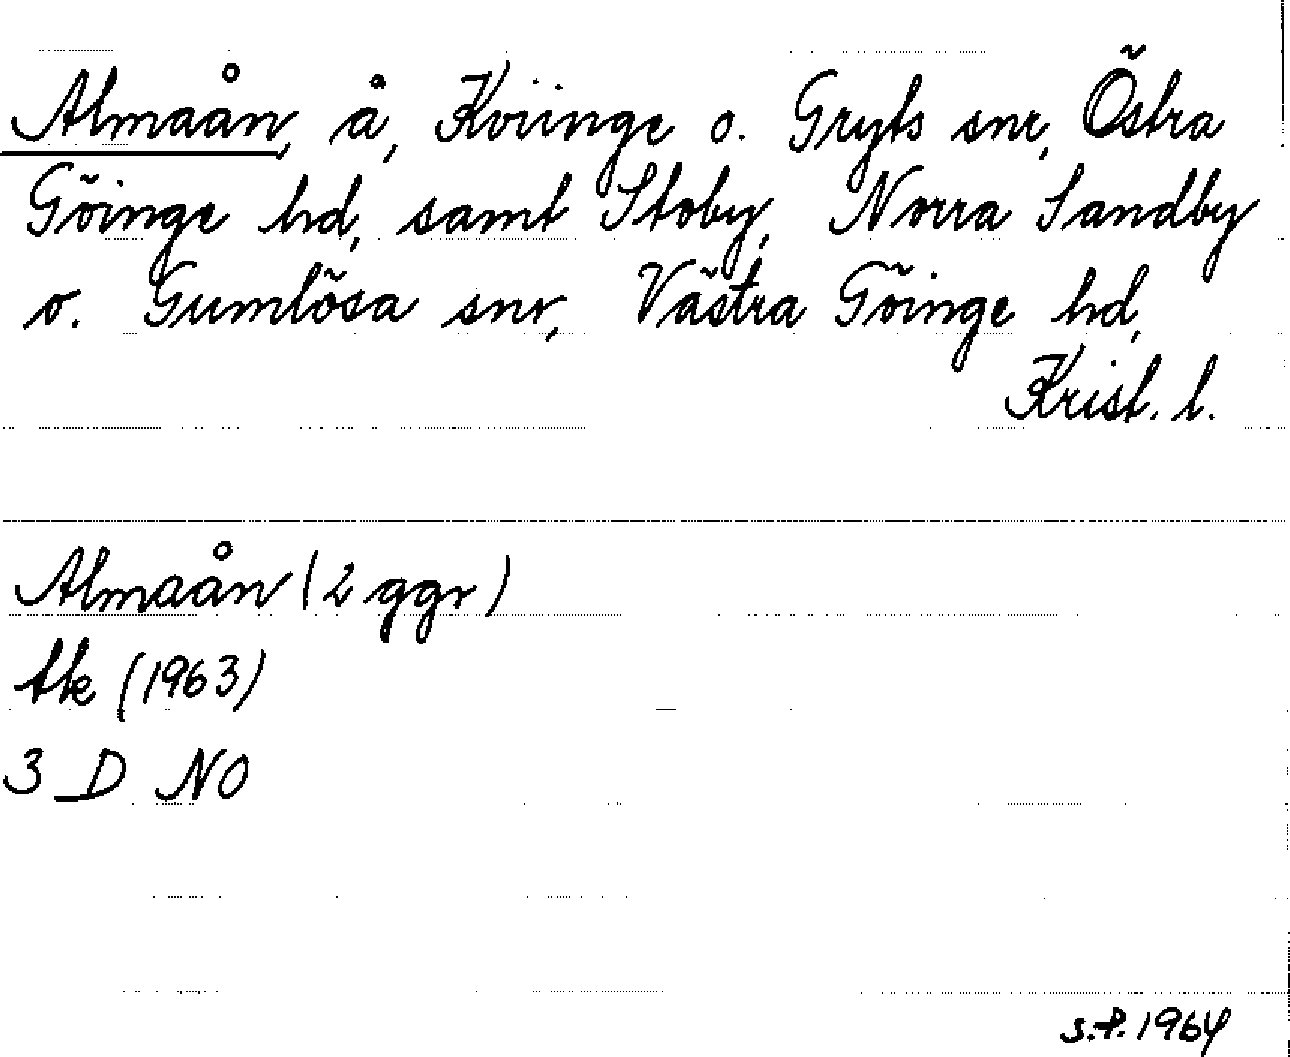 Almaån, å, Kviinge o. Gryts snr, Östra
Göinge hd, samt Stoby, Norra Sandby
o. Gumlösa snr, Västra Göinge hd,
Krist. l.
Almaån (2 ggr)
tk (1963)
3 D NO
s.f. 1964